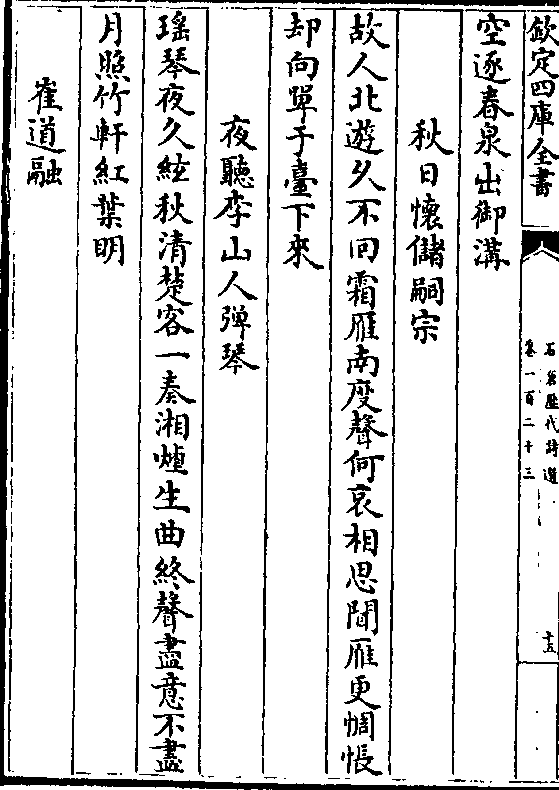 欽定四庫全書
石倉歷代詩選
卷一百二十三
十五
空逐春泉出御溝
秋日懷儲嗣宗
故人北遊久不回霜雁南度聲何哀相思聞雁更惆悵
却向單于臺下來
夜聽李山人彈琴
瑤琴夜久絃秋清楚客一奏湘煙生曲終聲盡意不盡
月照竹軒紅葉明
崔道融